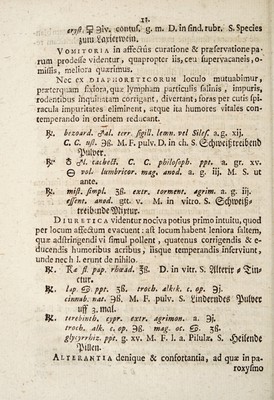 22.
cryst. ☿ ʒiv. contus. g. m. D. in sind. rubr. S. Species
zum Laxierwein.
VOMITORIA in affectûs curatione & præservatione pa-
rum prodesse videntur, quapropter iis, ceu supervacaneis, o-
missis, meliora quærimus.
Nec EX DIAPHORETICORUM loculo mutuabimur,
præterquam fixiora, quæ lympham particulis salinis, impuris,
rodentibus inquinatam corrigant, divertant, foras per cutis spi-
racula impuritates eliminent, atque ita humores vitales con-
temperando in ordinem reducant.
℞. bezoard. ♂al. ter. sigill. lemn. vel Siles. a. g. xij.
C. C. ust. ʒß. M. F. pulv. D. in ch. S. Schweißtreibend
Pulver.
℞. ♁ ♂. cachect. C. C. philosoph. ppt. a. gr. xv.
vol. lumbricor. mag. anod. a. g. iij. M. S. ut
ante.
℞. mist. simpl. ʒß. extr. torment. agrim. a. g. iij.
essent. anod. gtt. v. M. in vitro. S. Schweiß-
treibende Mixtur.
DIURETICA videntur nociva potius primo intuitu, quod
per locum affectum evacuent: ast locum habent leniora saltem,
quæ adstringendi vi simul pollent, quatenus corrigendis & e-
ducendis humoribus acribus, iisque temperandis inserviunt,
unde nec h. l. erunt de nihilo.
℞. fl. pap. rhœad. ʒß. D. in vitr. S. Tin-
ctur.
℞. lap. ppt. ʒß. troch. alkek. c. op. ℈j.
cinnab. nat. ℈ß. M. F. pulv. S. Linderndes Pulver
auff 3. mal.
℞. terebinth. cypr. extr. agrimon. a. ℈j.
troch. alk. c. op. ʒß. mag. ℈ß.
glycyrrhiz. ppt. g. xv. M. F. l. a. Pilulæ. S. Heilende
Pillen.
ALTERANTIA denique & confortantia, ad quæ in pa-
roxysmo